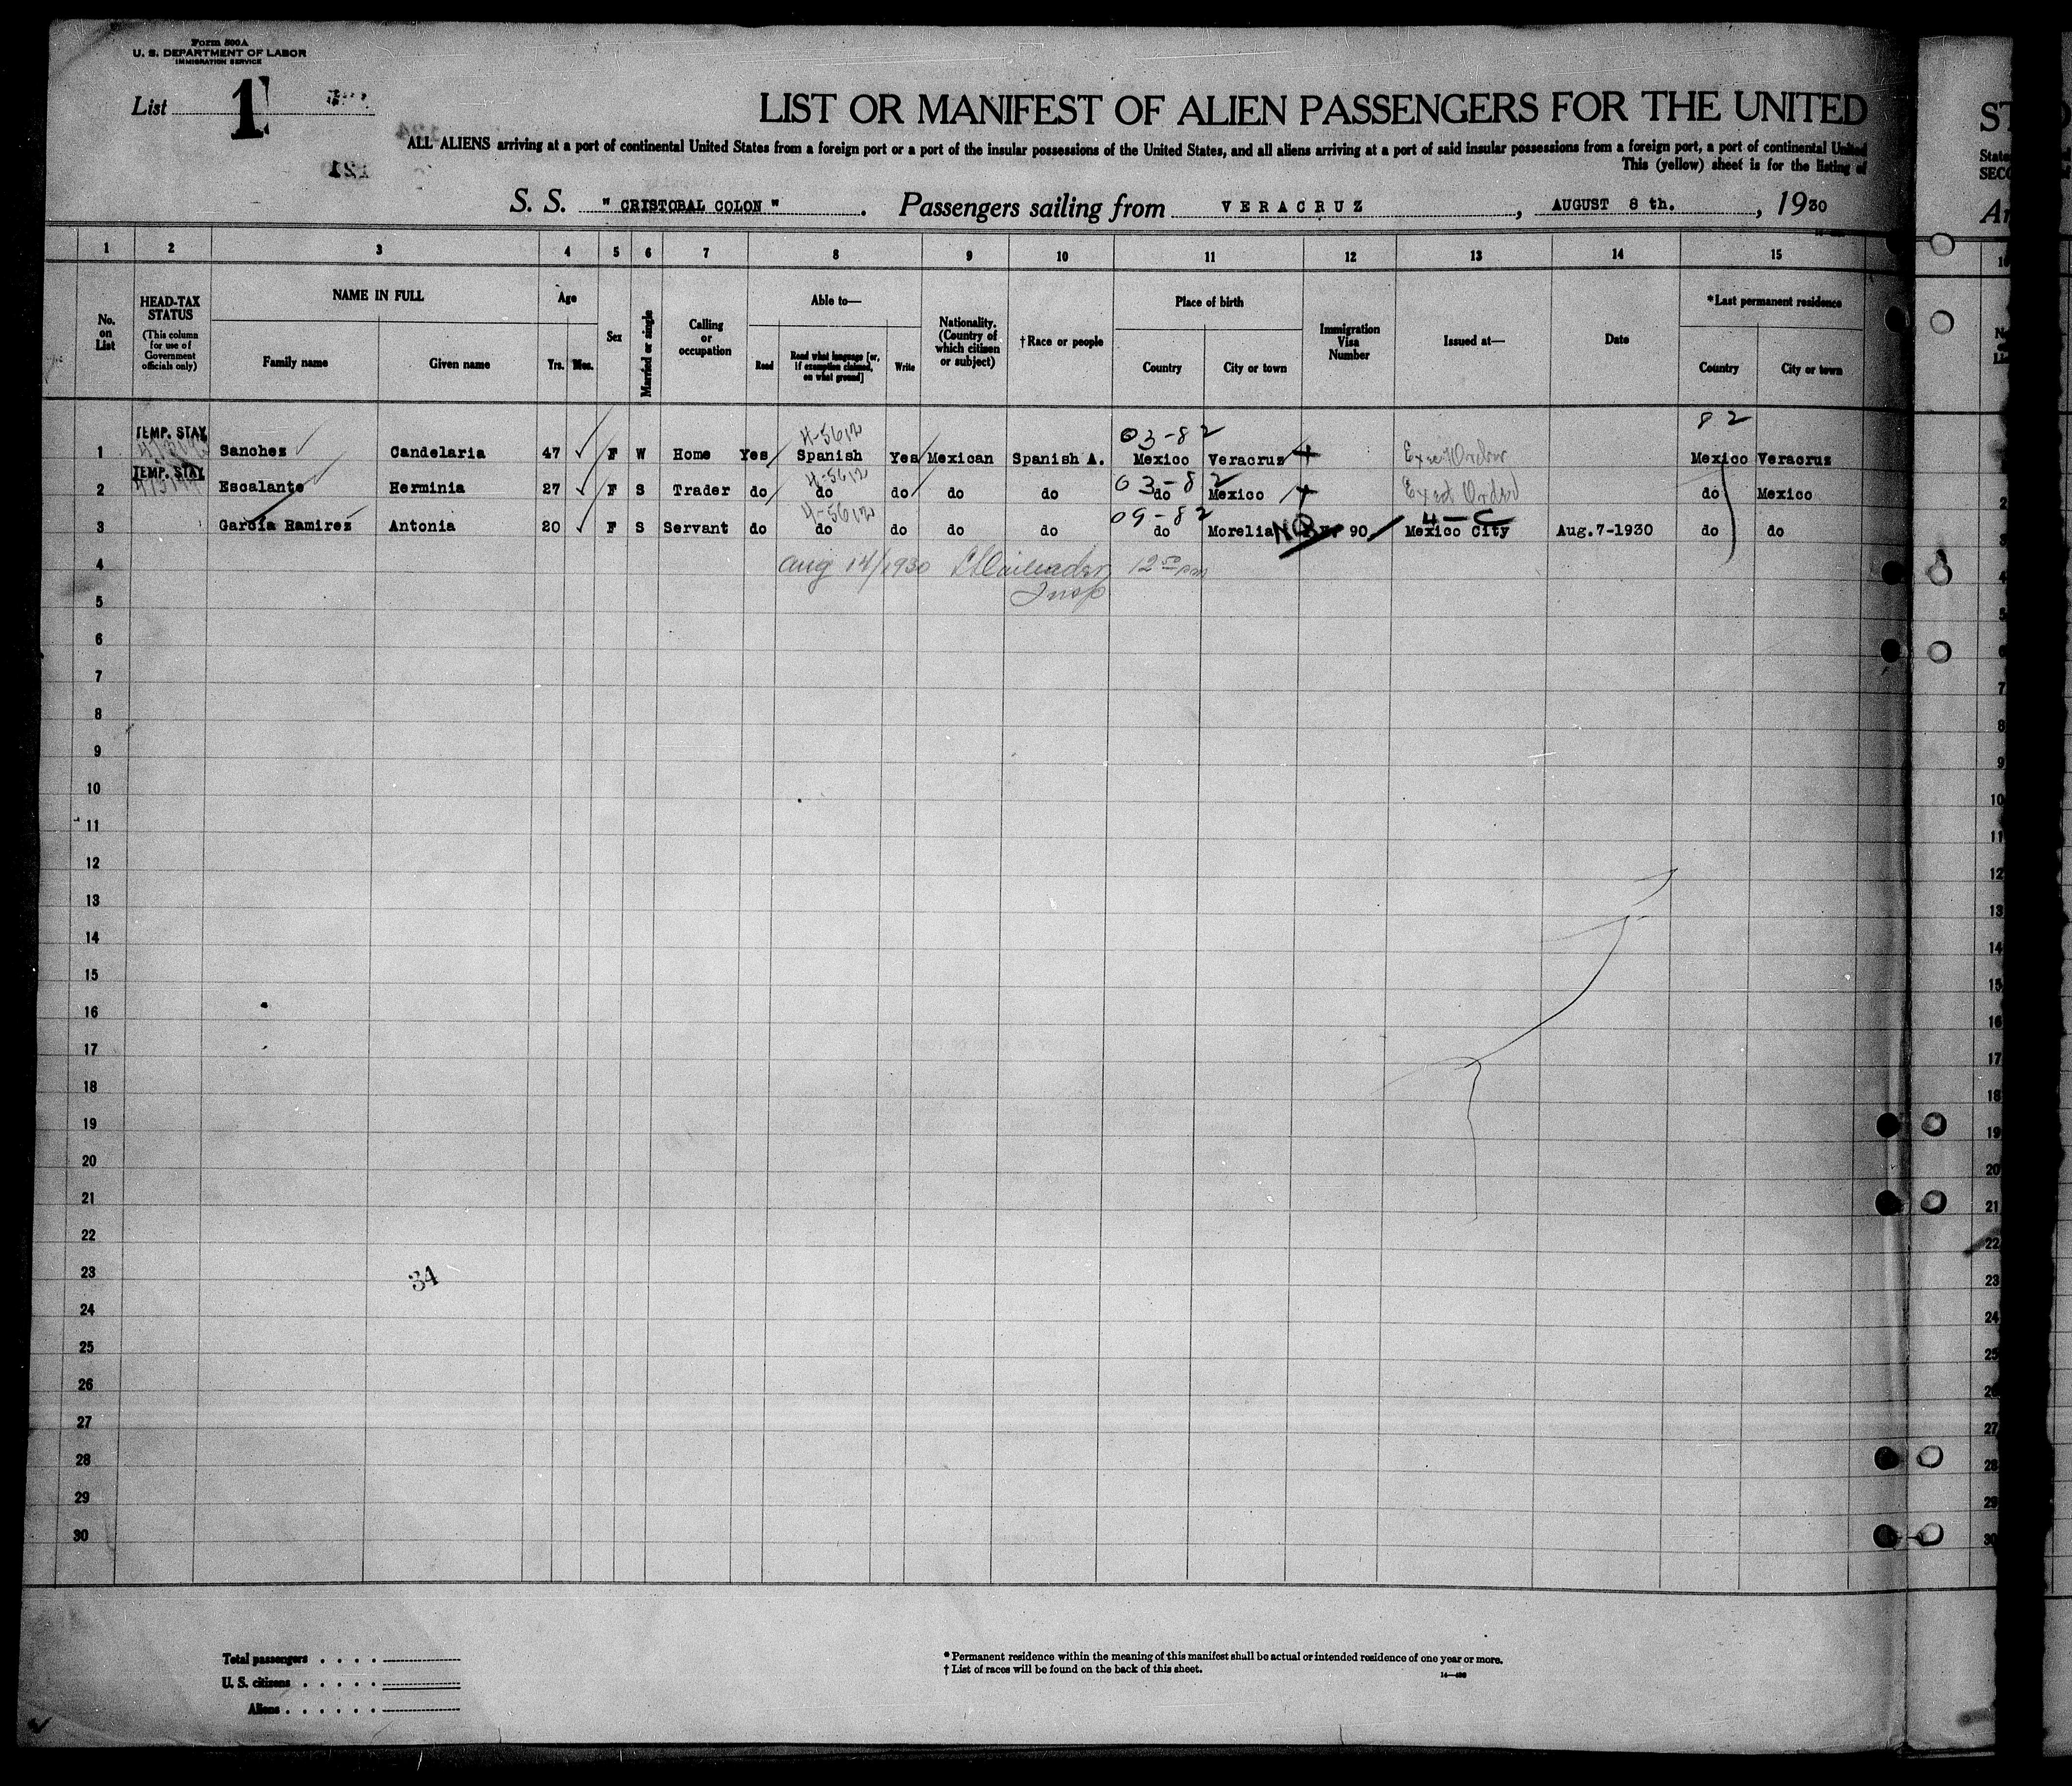 Form 500A
U. S. DEPARTMENT OF LABOR
IMMIGRATION SERVICE
List 1
LIST OR MANIFEST OF ALIEN PASSENGERS FOR THE UNITED
ALL ALIENS arriving at a port of continental United States from a foreign port or a port of the insular possessions of the United States, and all aliens arriving at a port of said insular possessions from a foreign port, a port of continental United
This (yellow) sheet is for the listing of
S. S. " CRISTOBAL COLON " . Passengers sailing from VERACRUZ , AUGUST 8 th. , 1930
1 2 3 4 5 6 7 8 9 10 11 12 13 14 15
No. on List
HEAD-TAX STATUS
(This column for use of Government officials only)
NAME IN FULL
Family name Given name
Age
Yrs. Mos.
Sex
Married or single
Calling or occupation
Able to—
Read
Read what language [or, if exemption claimed, on what ground]
Write
Nationality. (Country of which citizen or subject)
†Race or people
Place of birth
Country City or town
Immigration Visa Number
Issued at—
Date
*Last permanent residence
Country City or town
TEMP. STAY 4-5612 03-82 82
1 Sanchez Candelaria 47 F W Home Yes Spanish Yes Mexican Spanish A. Mexico Veracruz Mexico Veracruz
TEMP. STAY 4-5612 03-82
2 Escalante Herminia 27 F S Trader do do do do do do Mexico do Mexico
4-5612 09-82 4-C
3 García Ramirez Antonia 20 F S Servant do do do do do do Morelia 90 Mexico City Aug.7-1930 do do
4 Aug 14/1930 12 50 pm
5 Insp
6
7
8
9
10
11
12
13
14
15
16
17
18
19
20
21
22
23
34
24
25
26
27
28
29
30
Total passengers
U. S. citizens
Aliens
* Permanent residence within the meaning of this manifest shall be actual or intended residence of one year or more.
† List of races will be found on the back of this sheet.